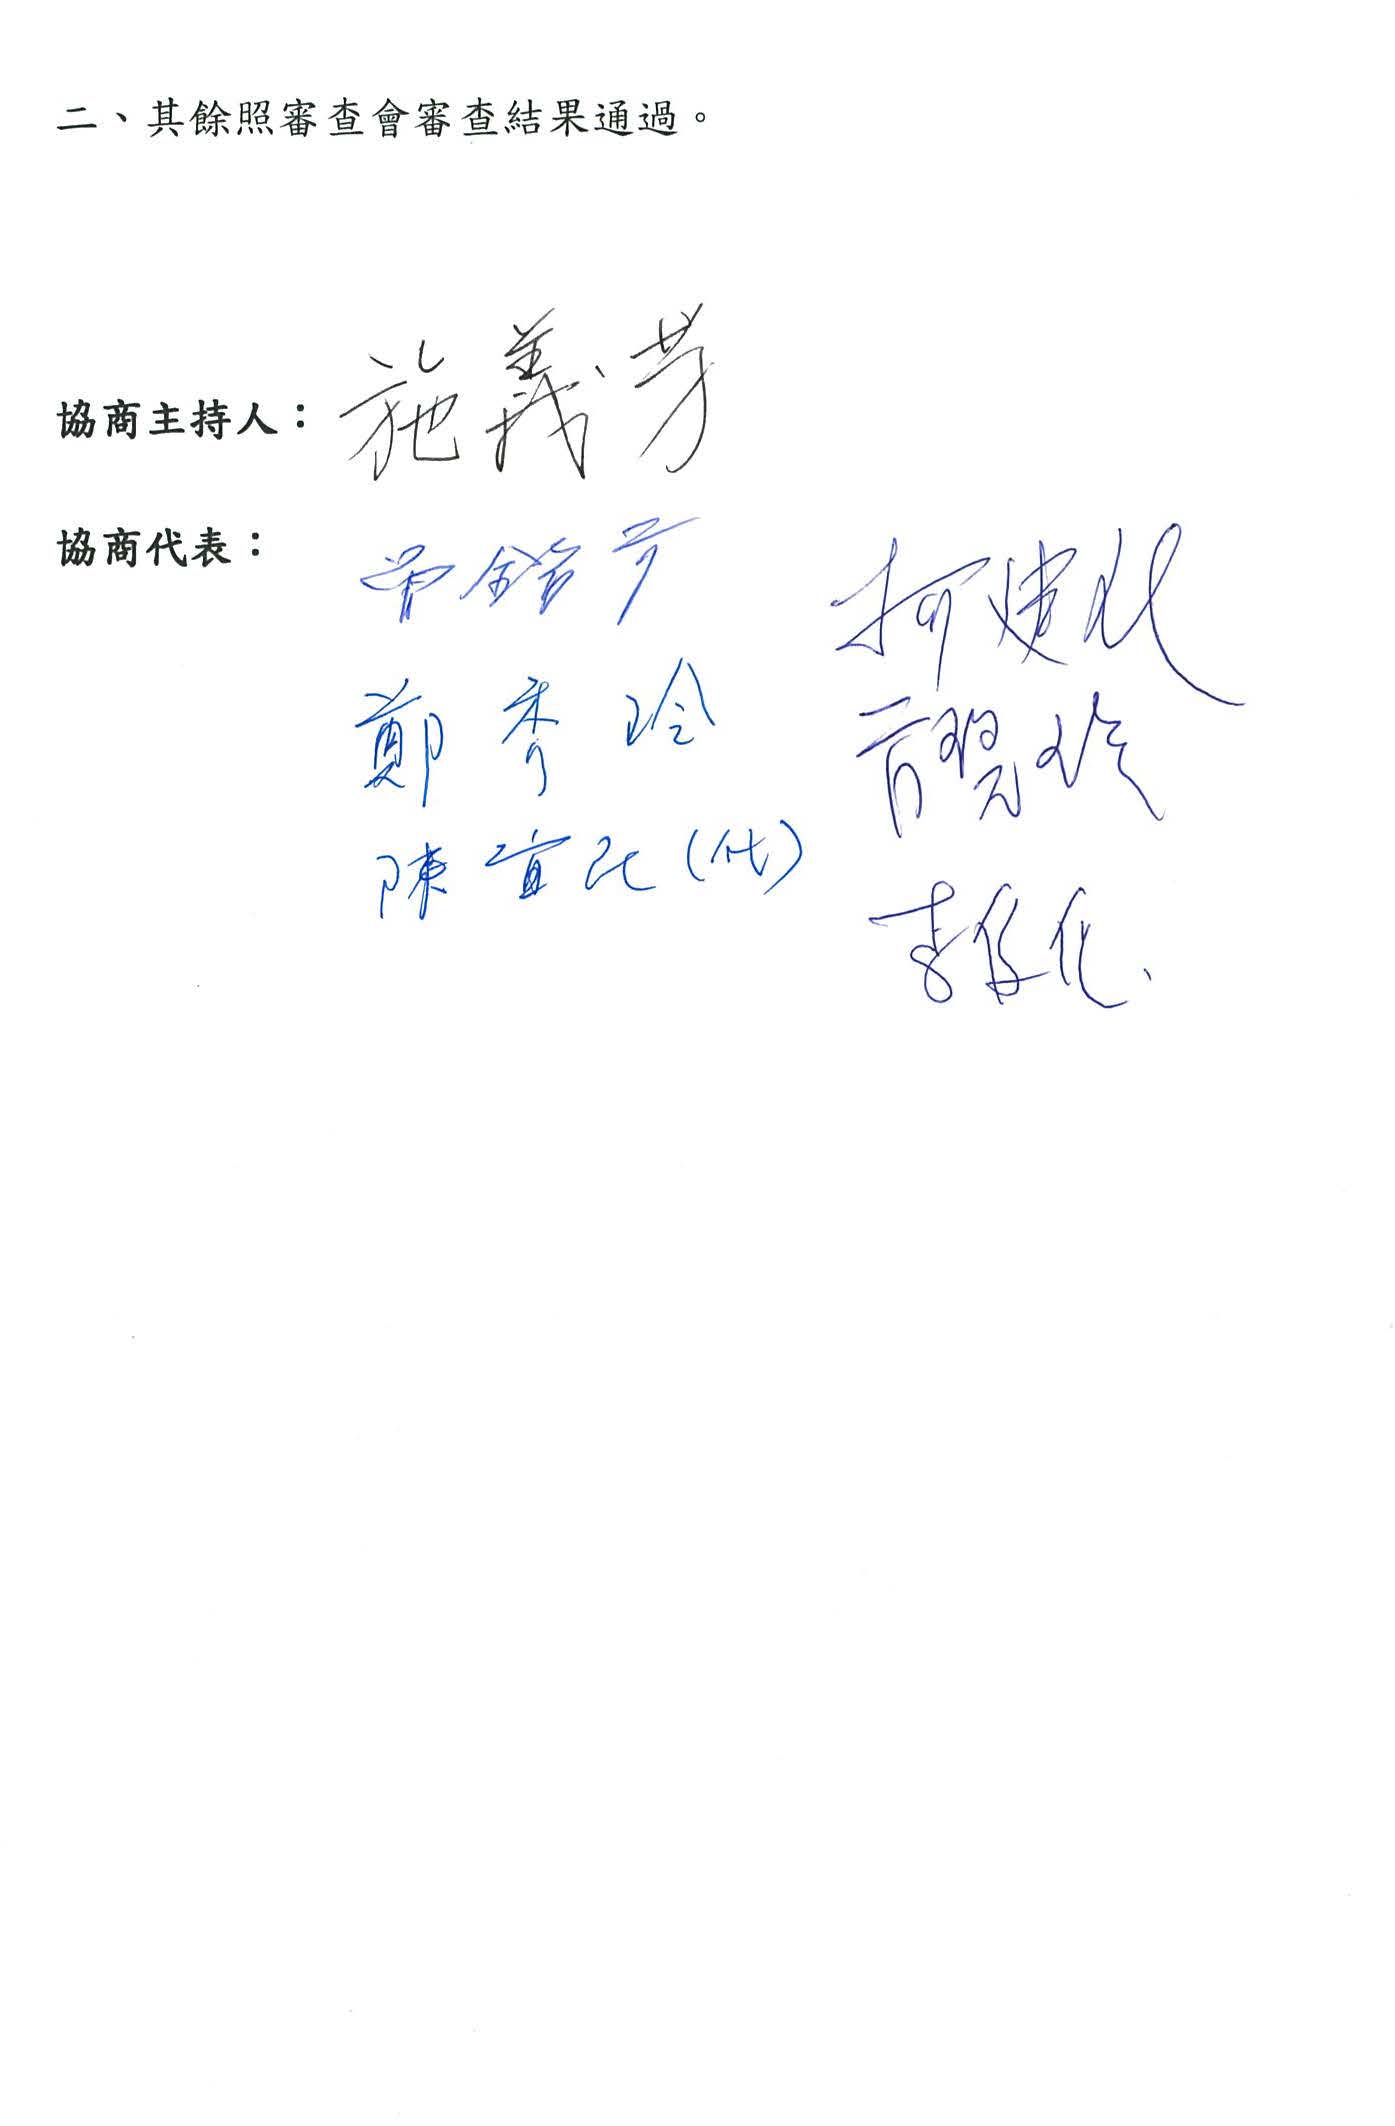 二、其餘照審查會審查結果通過。
協商主持人：施義芳
協商代表：曾銘宗 柯建銘
鄭秀玲 管碧玲
陳宜民(代)
李俊俋